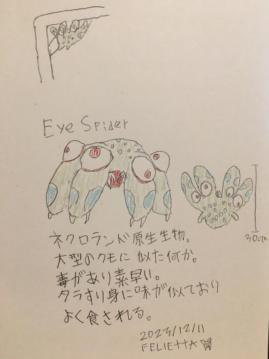 Eye Spider
30cm
ネクロランド原生生物。
大型のクモに似た何か。
毒があり素早い。
タラすり身に味が似ており
よく食される。
2023/12/11
FELIETTA